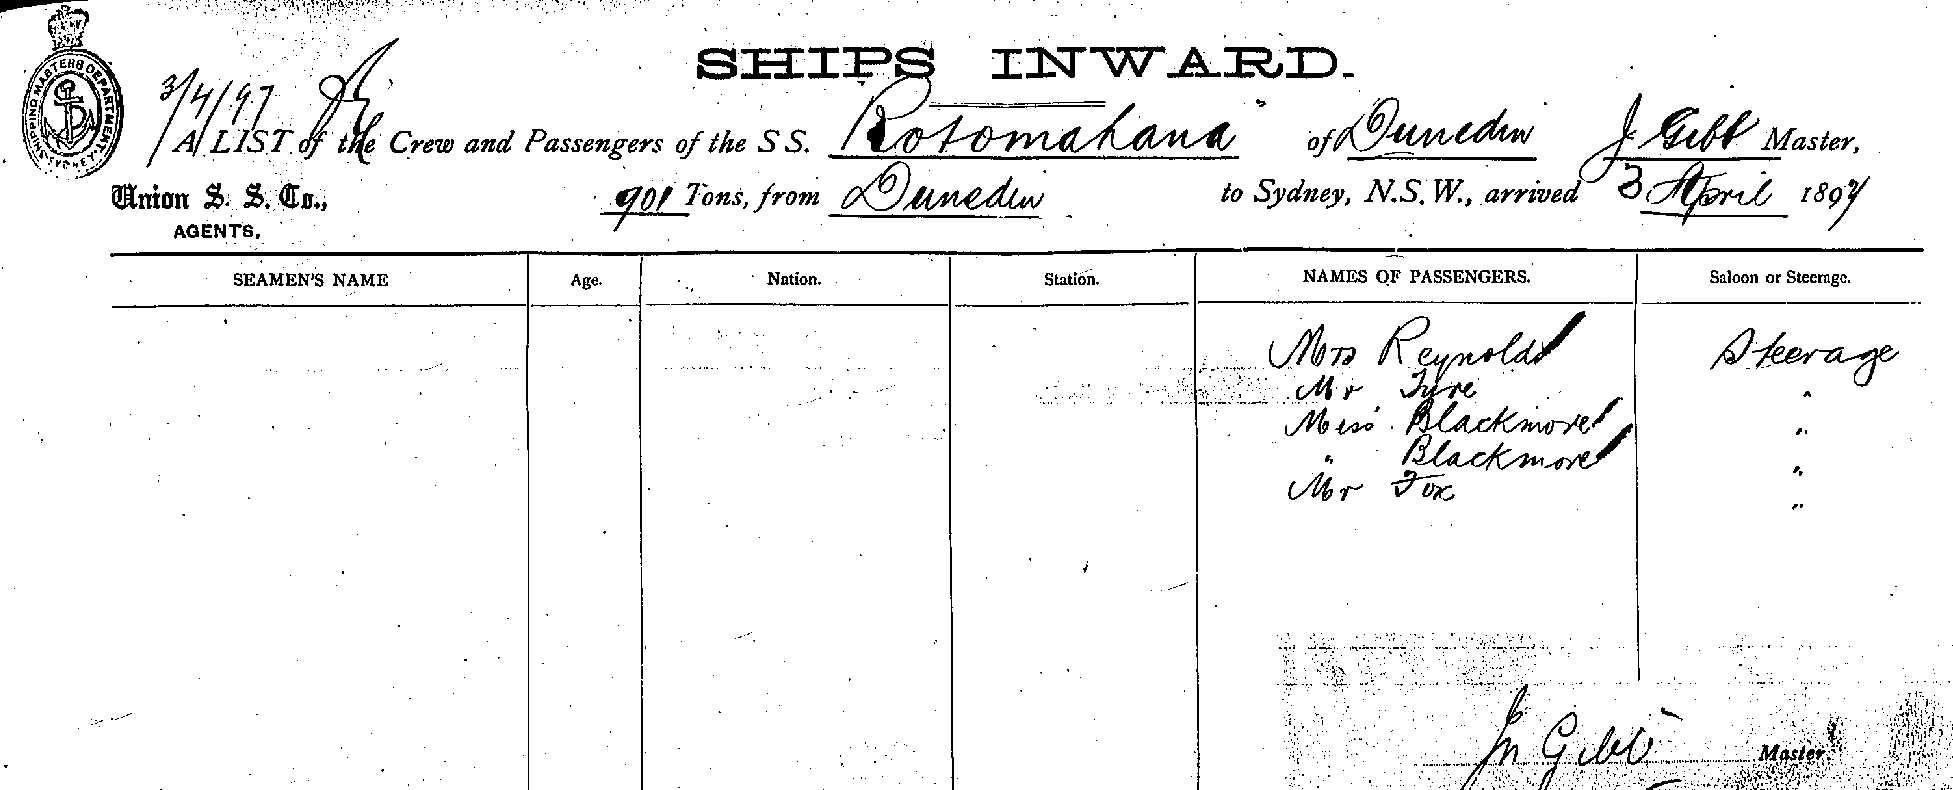 SHIPPING MASTERS DEPARTMENT SYDNEY
SHIPS INWARD.
3/4/97
A LIST of the Crew and Passengers of the S S. Rotomahana of Dunedin J Gibb Master,
Union S. S. Co., 901 Tons, from Dunedin to Sydney, N.S.W., arrived 3 April 1897
AGENTS.
SEAMEN'S NAME Age. Nation. Station. NAMES OF PASSENGERS. Saloon or Steerage.
Mrs Reynolds Steerage
Mr Tyre "
Miss Blackmore "
" Blackmore "
Mr Fox "
Jn Gibb Master